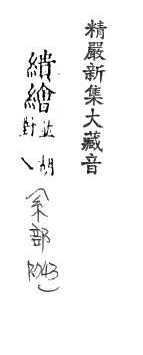 精嚴新集大藏音
繢繪
並胡
對乀
(糸部P.043)